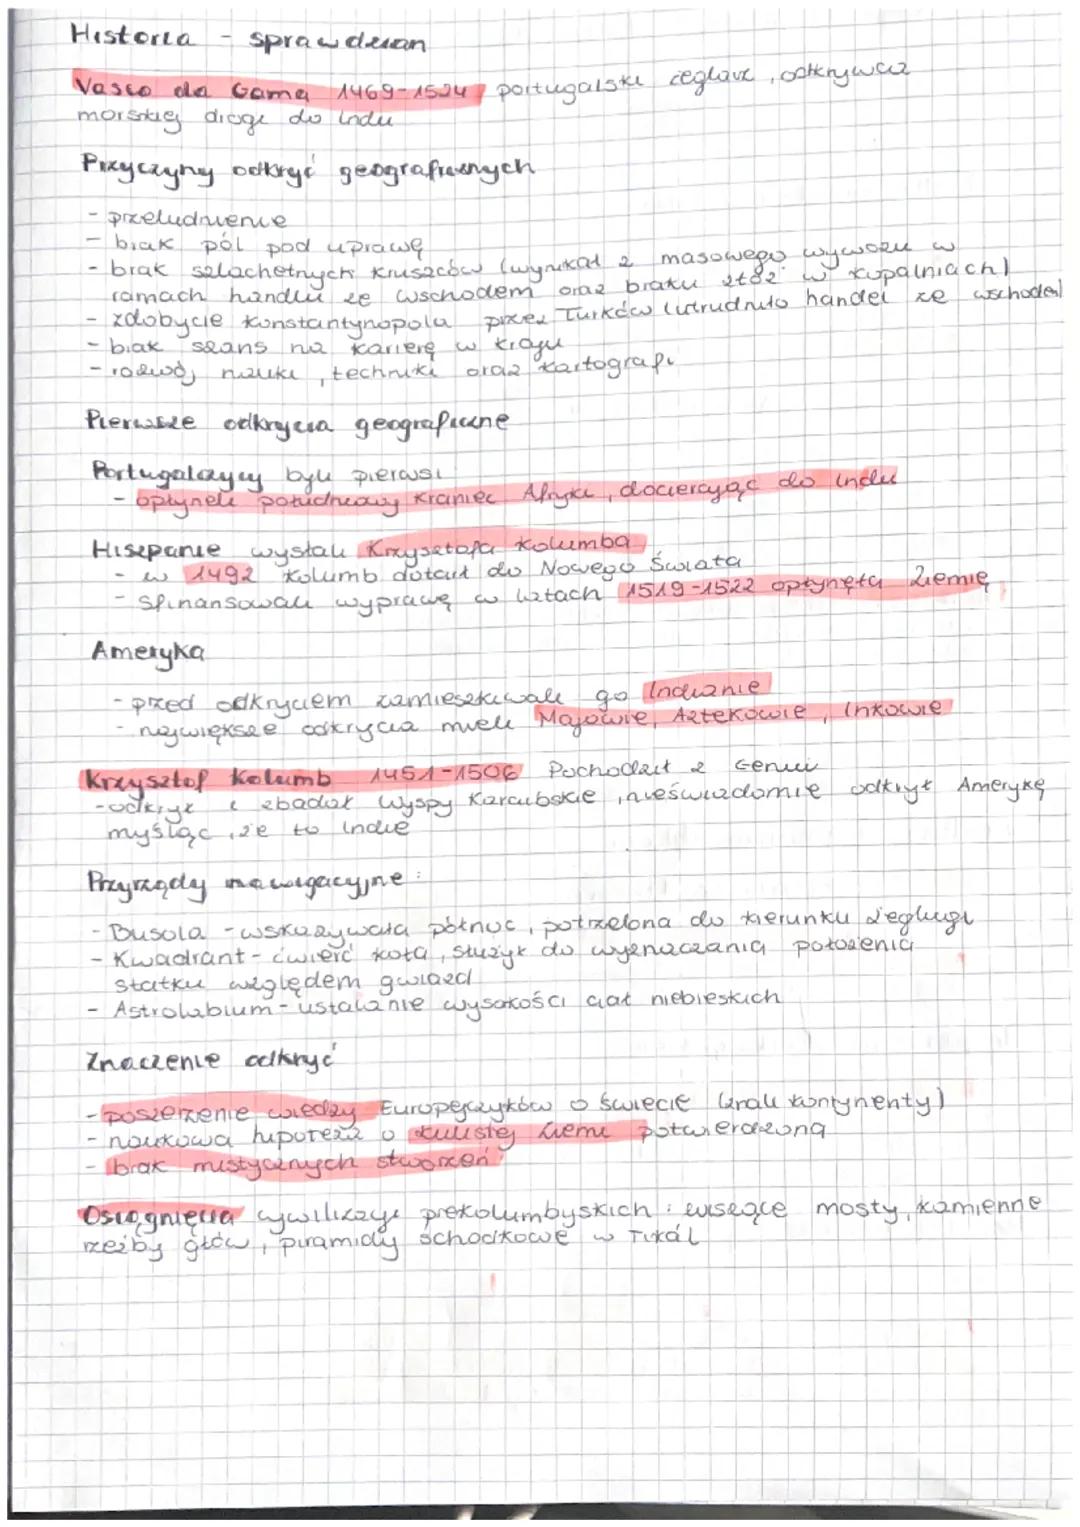 Historia - sprawdzian
Vasco da Gama 1469-1524 portugalski żeglarz, odkrywca
morskiej drogi do Indii
Przyczyny odkryć geograficznych
- przeludnienie
- brak pól pod uprawę
- brak szlachetnych kruszców (wynikał z masowego wywozu w
ramach handlu ze wschodem oraz braku złóż w kopalniach)
- zdobycie Konstantynopola przez Turków (utrudniło handel ze wschodem)
- brak szans na karierę w kraju
- rozwój nauki, techniki oraz kartografi
Pierwsze odkrycia geograficzne
Portugalczycy byli pierwsi
- opłyneli południowy kraniec Afryki, docierając do Indii
Hiszpanie wysłali Krzysztofa Kolumba
- w 1492 Kolumb dotarł do Nowego Świata
- sfinansowali wyprawę w latach 1519-1522 opłynęła Ziemię
Ameryka
- przed odkryciem zamieszkiwali go Indianie
- największe odkrycia mieli Majowie, Aztekowie, Inkowie
Krzysztof Kolumb 1451-1506 Pochodził z Genui
- odkrył i zbadał wyspy Karaibskie, nieświadomie odkrył Amerykę
myśląc, że to Indie
Przyrządy nawigacyjne:
- Busola - wskazywała północ, potrzebna do kierunku żeglugi
- Kwadrant - ćwierć koła, służył do wyznaczania położenia
statku względem gwiazd
- Astrolabium - ustalanie wysokości ciał niebieskich
Znaczenie odkryć
- poszerzenie wiedzy Europejczyków o świecie (znali kontynenty)
- naukowa hipoteza o kulistej Ziemi potwierdzona
- brak mistycznych stworzeń
Osiągnięcia cywilizacji prekolumbijskich: wiszące mosty, kamienne
rzeźby głów, piramidy schodkowe w Tikál